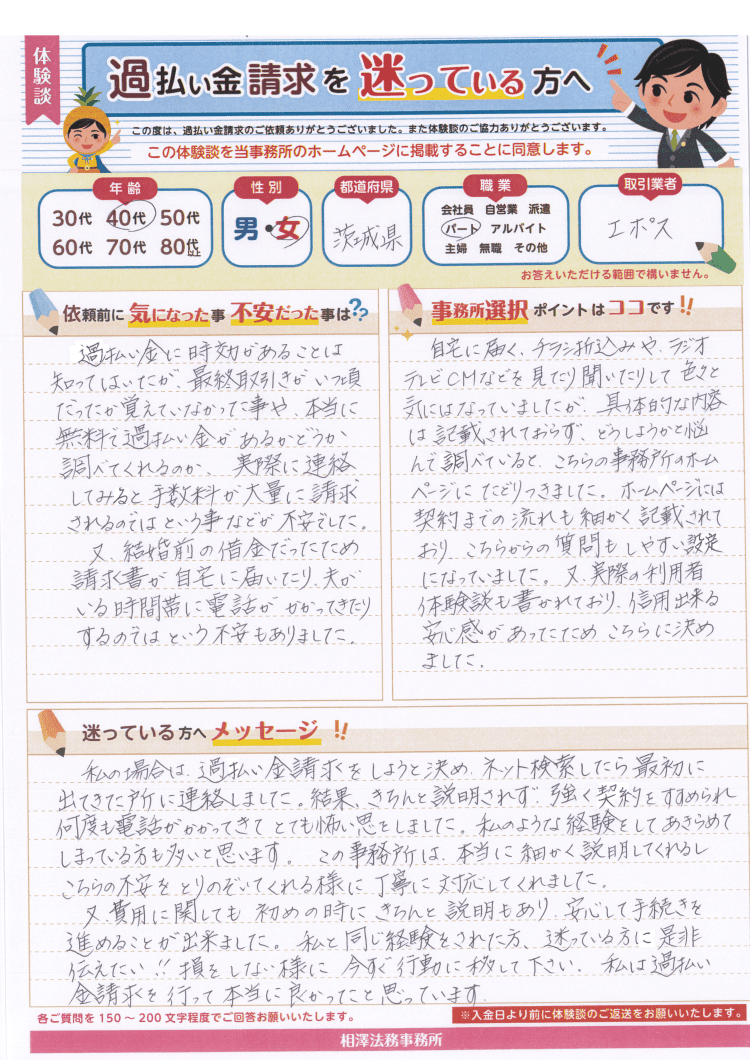 体験談
過払い金請求を迷っている方へ
この度は、過払い金請求のご依頼ありがとうございました。また体験談のご協力ありがとうございます。
この体験談を当事務所のホームページに掲載することに同意します。
年齢
30代 40代 50代
60代 70代 80代以上
性別
男・女
都道府県
茨城県
職業
会社員 自営業 派遣
パート アルバイト
主婦 無職 その他
取引業者
エポス
お答えいただける範囲で構いません。
依頼前に気になった事 不安だった事は??
過払い金に時効があることは
知ってはいたが、最終取引きがいつ頃
だったか覚えていなかった事や、本当に
無料で過払い金があるかどうか
調べてくれるのか、実際に連絡
してみると手数料が大量に請求
されるのではという事などが不安でした。
又、結婚前の借金だったため
請求書が自宅に届いたり、夫が
いる時間帯に電話がかかってきたり
するのではという不安もありました。
事務所選択ポイントはココです!!
自宅に届く、チラシ折込みや、ラジオ
テレビCMなどを見たり聞いたりして色々と
気にはなっていましたが、具体的な内容
は記載されておらず、どうしようかと悩
んで調べていると、こちらの事務所のホーム
ページにたどりつきました。ホームページには
契約までの流れも細かく記載されて
おり、こちらからの質問もしやすい設定
になっていました。又、実際の利用者
体験談も書かれており、信用出来る
安心感があったためこちらに決め
ました。
迷っている方へメッセージ!!
私の場合は、過払い金請求をしようと決め、ネット検索したら最初に
出てきた所に連絡しました。結果、きちんと説明されず、強く契約をすすめられ
何度も電話がかかってきてとても怖い思をしました。私のような経験をしてあきらめて
しまっている方も多いと思います。この事務所は、本当に細かく説明してくれるし
こちらの不安をとりのぞいてくれる様に丁寧に対応してくれました。
又、費用に関しても初めの時にきちんと説明もあり、安心して手続きを
進めることが出来ました。私と同じ経験をされた方、迷っている方に是非
伝えたい!!損をしない様に今すぐ行動に移して下さい。私は過払い
金請求を行って本当に良かったと思っています。
各ご質問を150〜200文字程度でご回答お願いいたします。
※入金日より前に体験談のご返送をお願いいたします。
相澤法務事務所